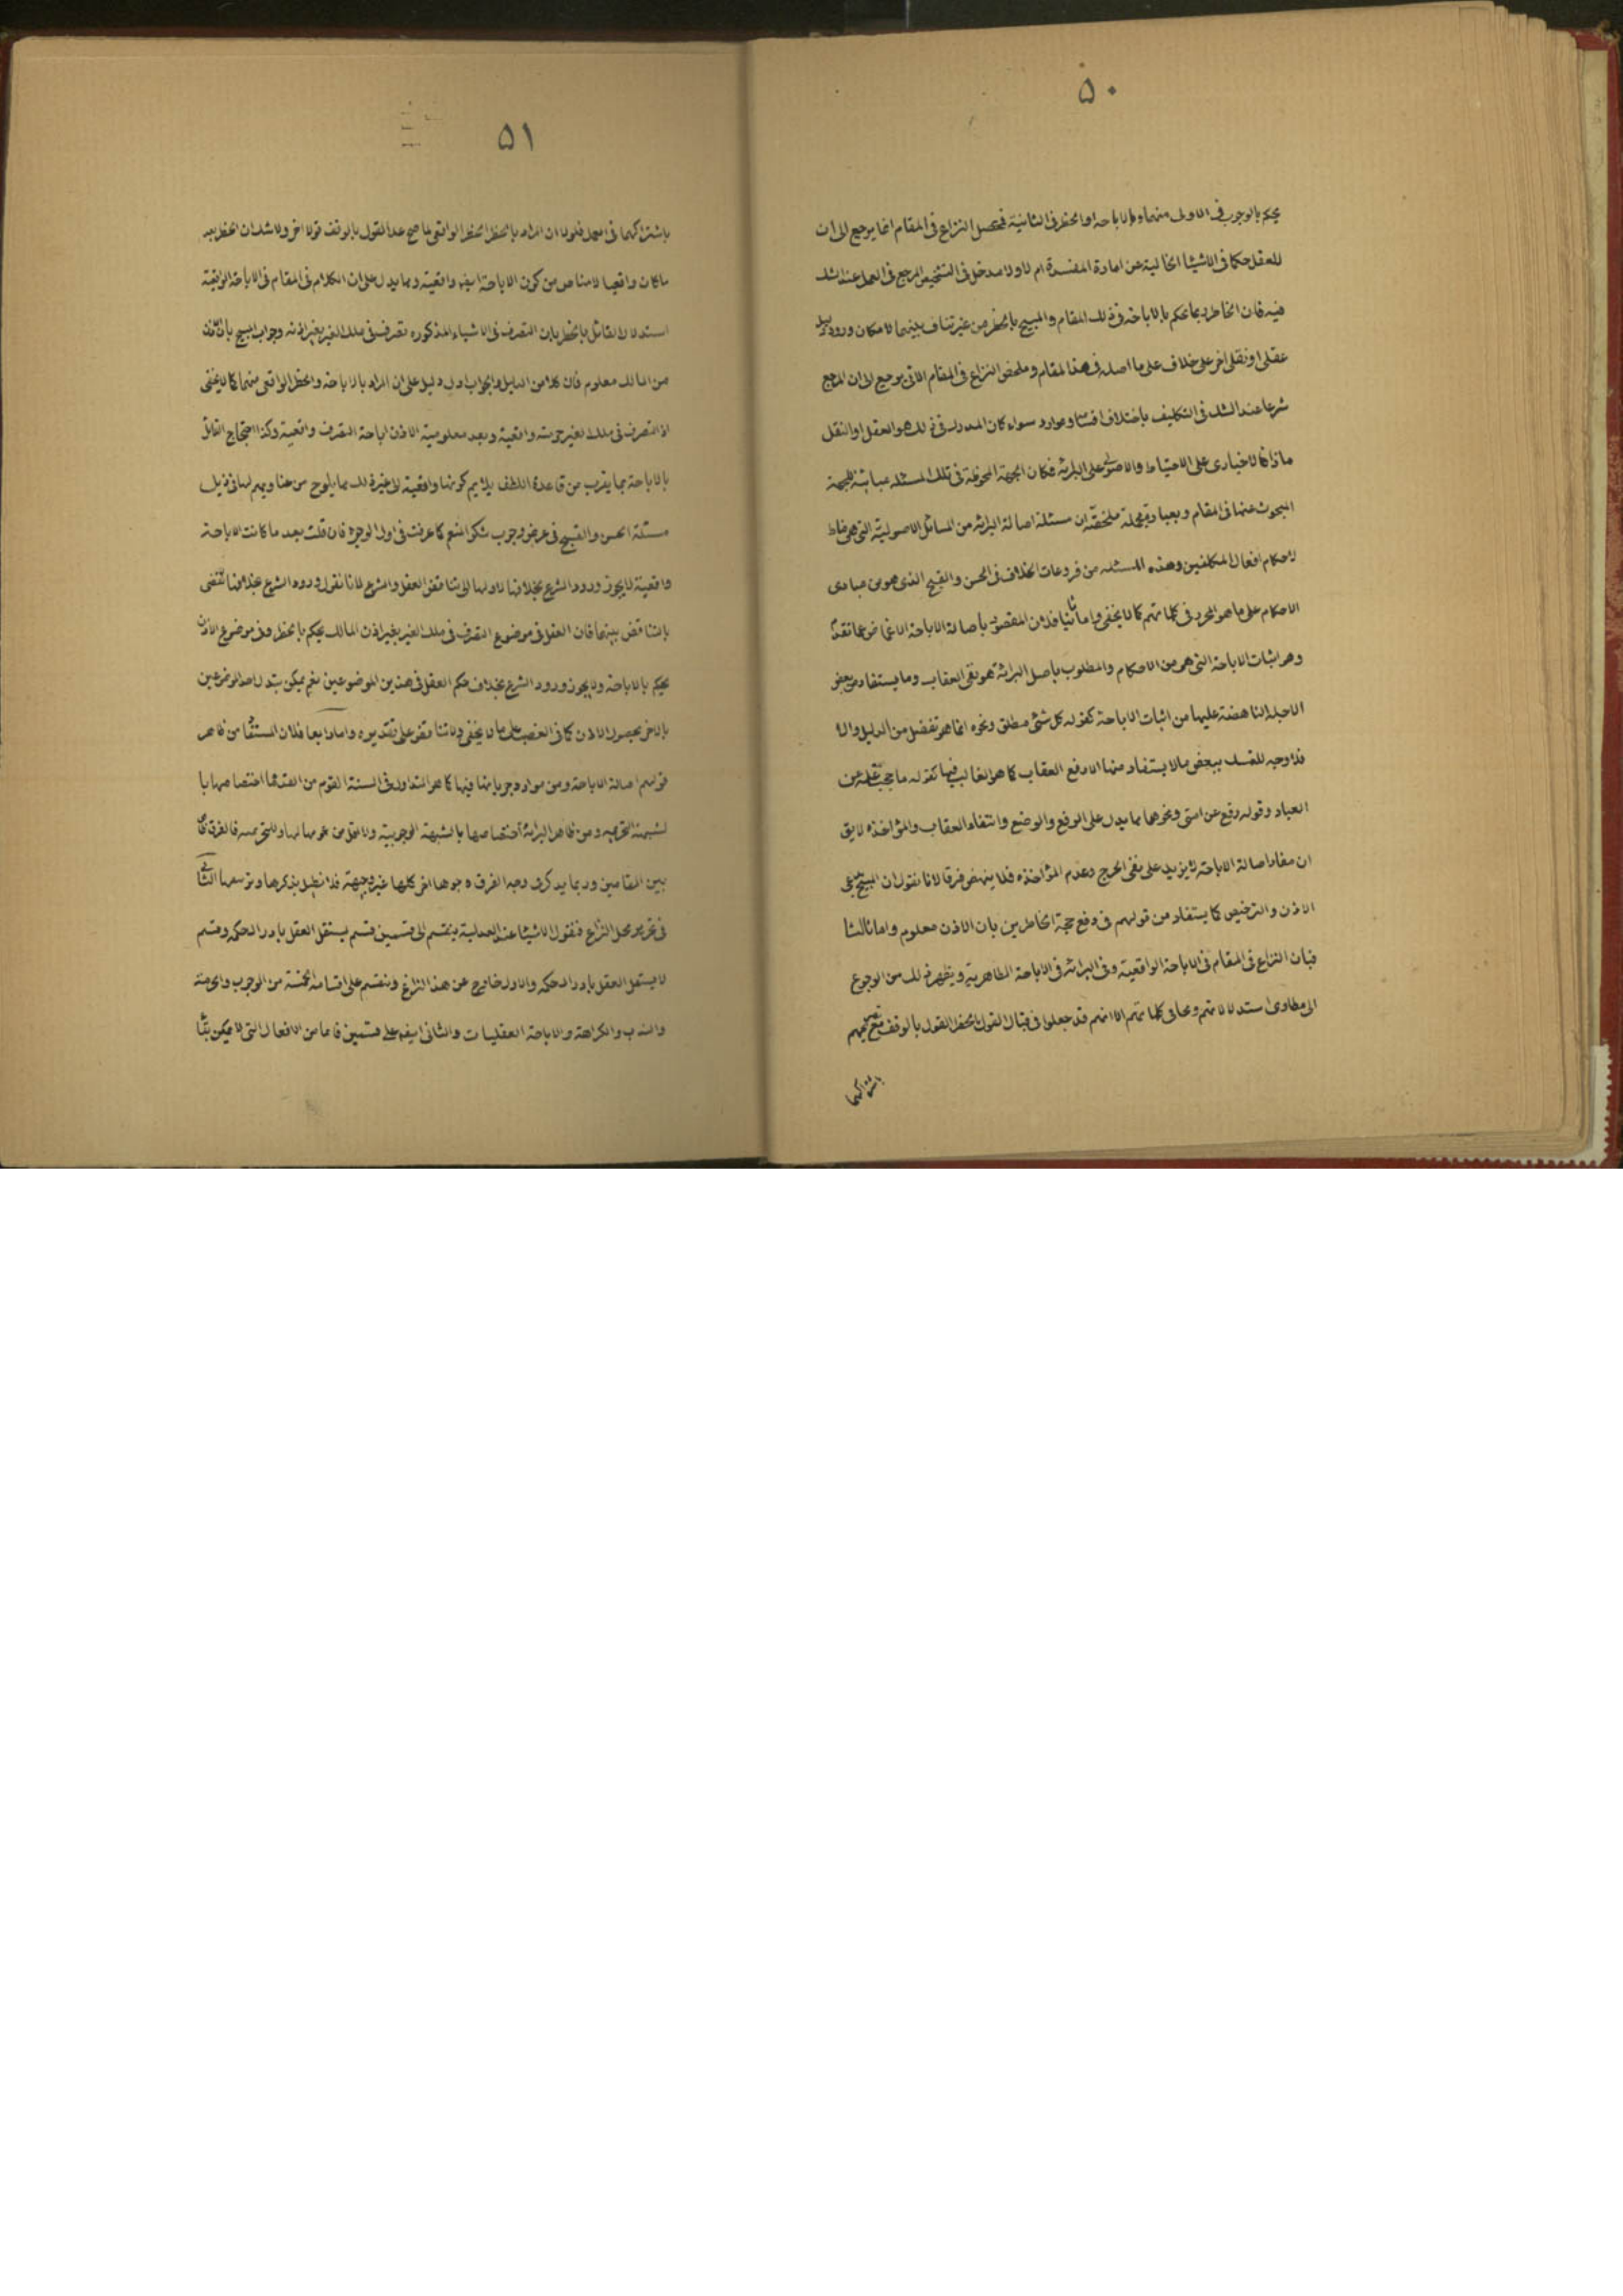 ۵۰
يحكم بالوجوب فى الاولى منهما والاباحة او الحظر فى الثانية فمحصل النزاع فى المقام انما يرجع الى ان
للعقل حكما فى الاشياء الخالية عن امارة المفسدة ام لا ولا مدخل فى التشخيص المرجع فى العمل عند الشك
فيه فان الحاظر ربما يحكم بالاباحة فى ذلك المقام والمبيح بالحظر من غير تناف بينهما لامكان ورود دليل
عقلى او نقلى اخر على خلاف على ما اصله فى هذا المقام وملخص النزاع فى المقام الاتى يرجع الى ان المرجع
شرعا عند الشك فى التكليف باختلاف اقسامه وموارده سواء كان المدرك فى ذلك هو العقل او النقل
ماذا فالاخبارى على الاحتياط والاصولى على البرائة فكان الجهة الملحوظة فى تلك المسئلة مباينة للجهة
المبحوث عنها فى المقام وبعبارة مجملة ملخصة ان مسئلة اصالة البرائة من المسائل الاصولية التى هى
لاحكام افعال المكلفين وهذه المسئلة من فروعات الخلاف فى الحسن والقبح الذى هو من مبادى
الاحكام على ما هو المحرر فى كلماتهم كما لا يخفى واما ثانيا فلان المقصود باصالة الاباحة الاغماض عما تقدم
وهو اثبات الاباحة التى هى من الاحكام والمطلوب باصل البرائة هو نفى العقاب وما يستفاد من بعض
الادلة الناهضة عليها من اثبات الاباحة كقوله كل شئ مطلق ونحوه انما هو تفضل من الدليل والا
فلا وجه للتمسك ببعض ما لا يستفاد منها الا رفع العقاب كما هو الغالب فيها كقوله ما حجب علمه عن
العباد وقوله رفع عن امتى ونحوها مما يدل على الرفع والوضع وانتفاء العقاب والمؤاخذة لا يق
ان مفاد اصالة الاباحة لا يزيد على نفى الحرج وعدم المؤاخذة فلا ينهض فرقا لانا نقول ان المبيح يدعى
الاذن والترخيص كما يستفاد من قولهم فى دفع حجة الحاظرين بان الاذن معلوم واما ثالثا
فبان النزاع فى المقام فى الاباحة الواقعية وفى البرائة فى الاباحة الظاهرية ويظهر ذلك من الرجوع
الى مطاوى استدلالاتهم ومحاوى كلماتهم الا انهم قد جعلوا فى قبال القول بالحظر القول بالوقف مع تصريحهم
باشتراكهما
۵۱
باشتراكهما فى العمل فلولا ان المراد بالحظر الحظر الواقعى ما صح عد القول بالوقف قولا اخر ولا شك ان الحظر بعد
ما كان واقعيا لا مناص من كون الاباحة ايضا واقعية ومما يدل على ان الكلام فى المقام فى الاباحة الواقعية
استدلال القائل بالحظر بان التصرف فى الاشياء المذكورة تصرف فى ملك الغير بغير اذنه وجواب المبيح بان الاذن
من المالك معلوم فان كلا من الدليل والجواب ادل دليل على ان المراد بالاباحة والحظر الواقعى منهما كما لا يخفى
اذ التصرف فى ملك الغير حرمته واقعية وبعد معلومية الاذن اباحة التصرف واقعية وكذا احتجاج القائل
بالاباحة بما يقرب من قاعدة اللطف يلايم كونها واقعية الى غير ذلك مما يلوح من هنا ومما فى ذيل
مسئلة الحسن والقبح فى عرض وجوب شكر المنعم كما عرفت فى اول الوجوه فان قلت بعد ما كانت الاباحة
واقعية لا يجوز ورود الشرع بخلافها لاولها الى تناقض العقل والشرع لانا نقول ورود الشرع بخلافها لا يقتضى
بالتناقض بينهما فان العقل فى موضوع التصرف فى ملك الغير بغير اذن المالك يحكم بالحظر وفى موضوع الاذن
يحكم بالاباحة ولا يجوز ورود الشرع بخلاف حكم العقل فى هذين الموضوعين نعم يمكن تبدل احد الموضوعين
بالاخر بحصول الاذن كما فى الغصب على ما لا يخفى ولا تناقض على تقديره واما رابعا فلان المستفاد من ظاهر
قولهم اصالة الاباحة ومن موارد جريانها فيها كما هو المتداول فى السنة القوم من القدماء اختصاصها با
لشبهة التحريمية ومن ظاهر البرائة اختصاصها بالشبهة الوجوبية ولا اقل من عمومها لها وللتحريمية فالفرق
بين المقامين وربما يذكر فى وجه الفرق وجوها اخر كلها غير وجيهة فلا نطيل بذكرها وتوسيعها الثانى
فى تحرير محل النزاع فنقول الاشياء عند العدلية ينقسم الى قسمين قسم يستقل العقل بادراك حكمه وقسم
لا يستقل العقل بادراك حكمه والاول خارج عن هذا النزاع وينقسم على اقسامه الخمسة من الوجوب والحرمة
والندب والكراهة والاباحة العقليات والثانى ايضا على قسمين فاما من الافعال التى لا يمكن